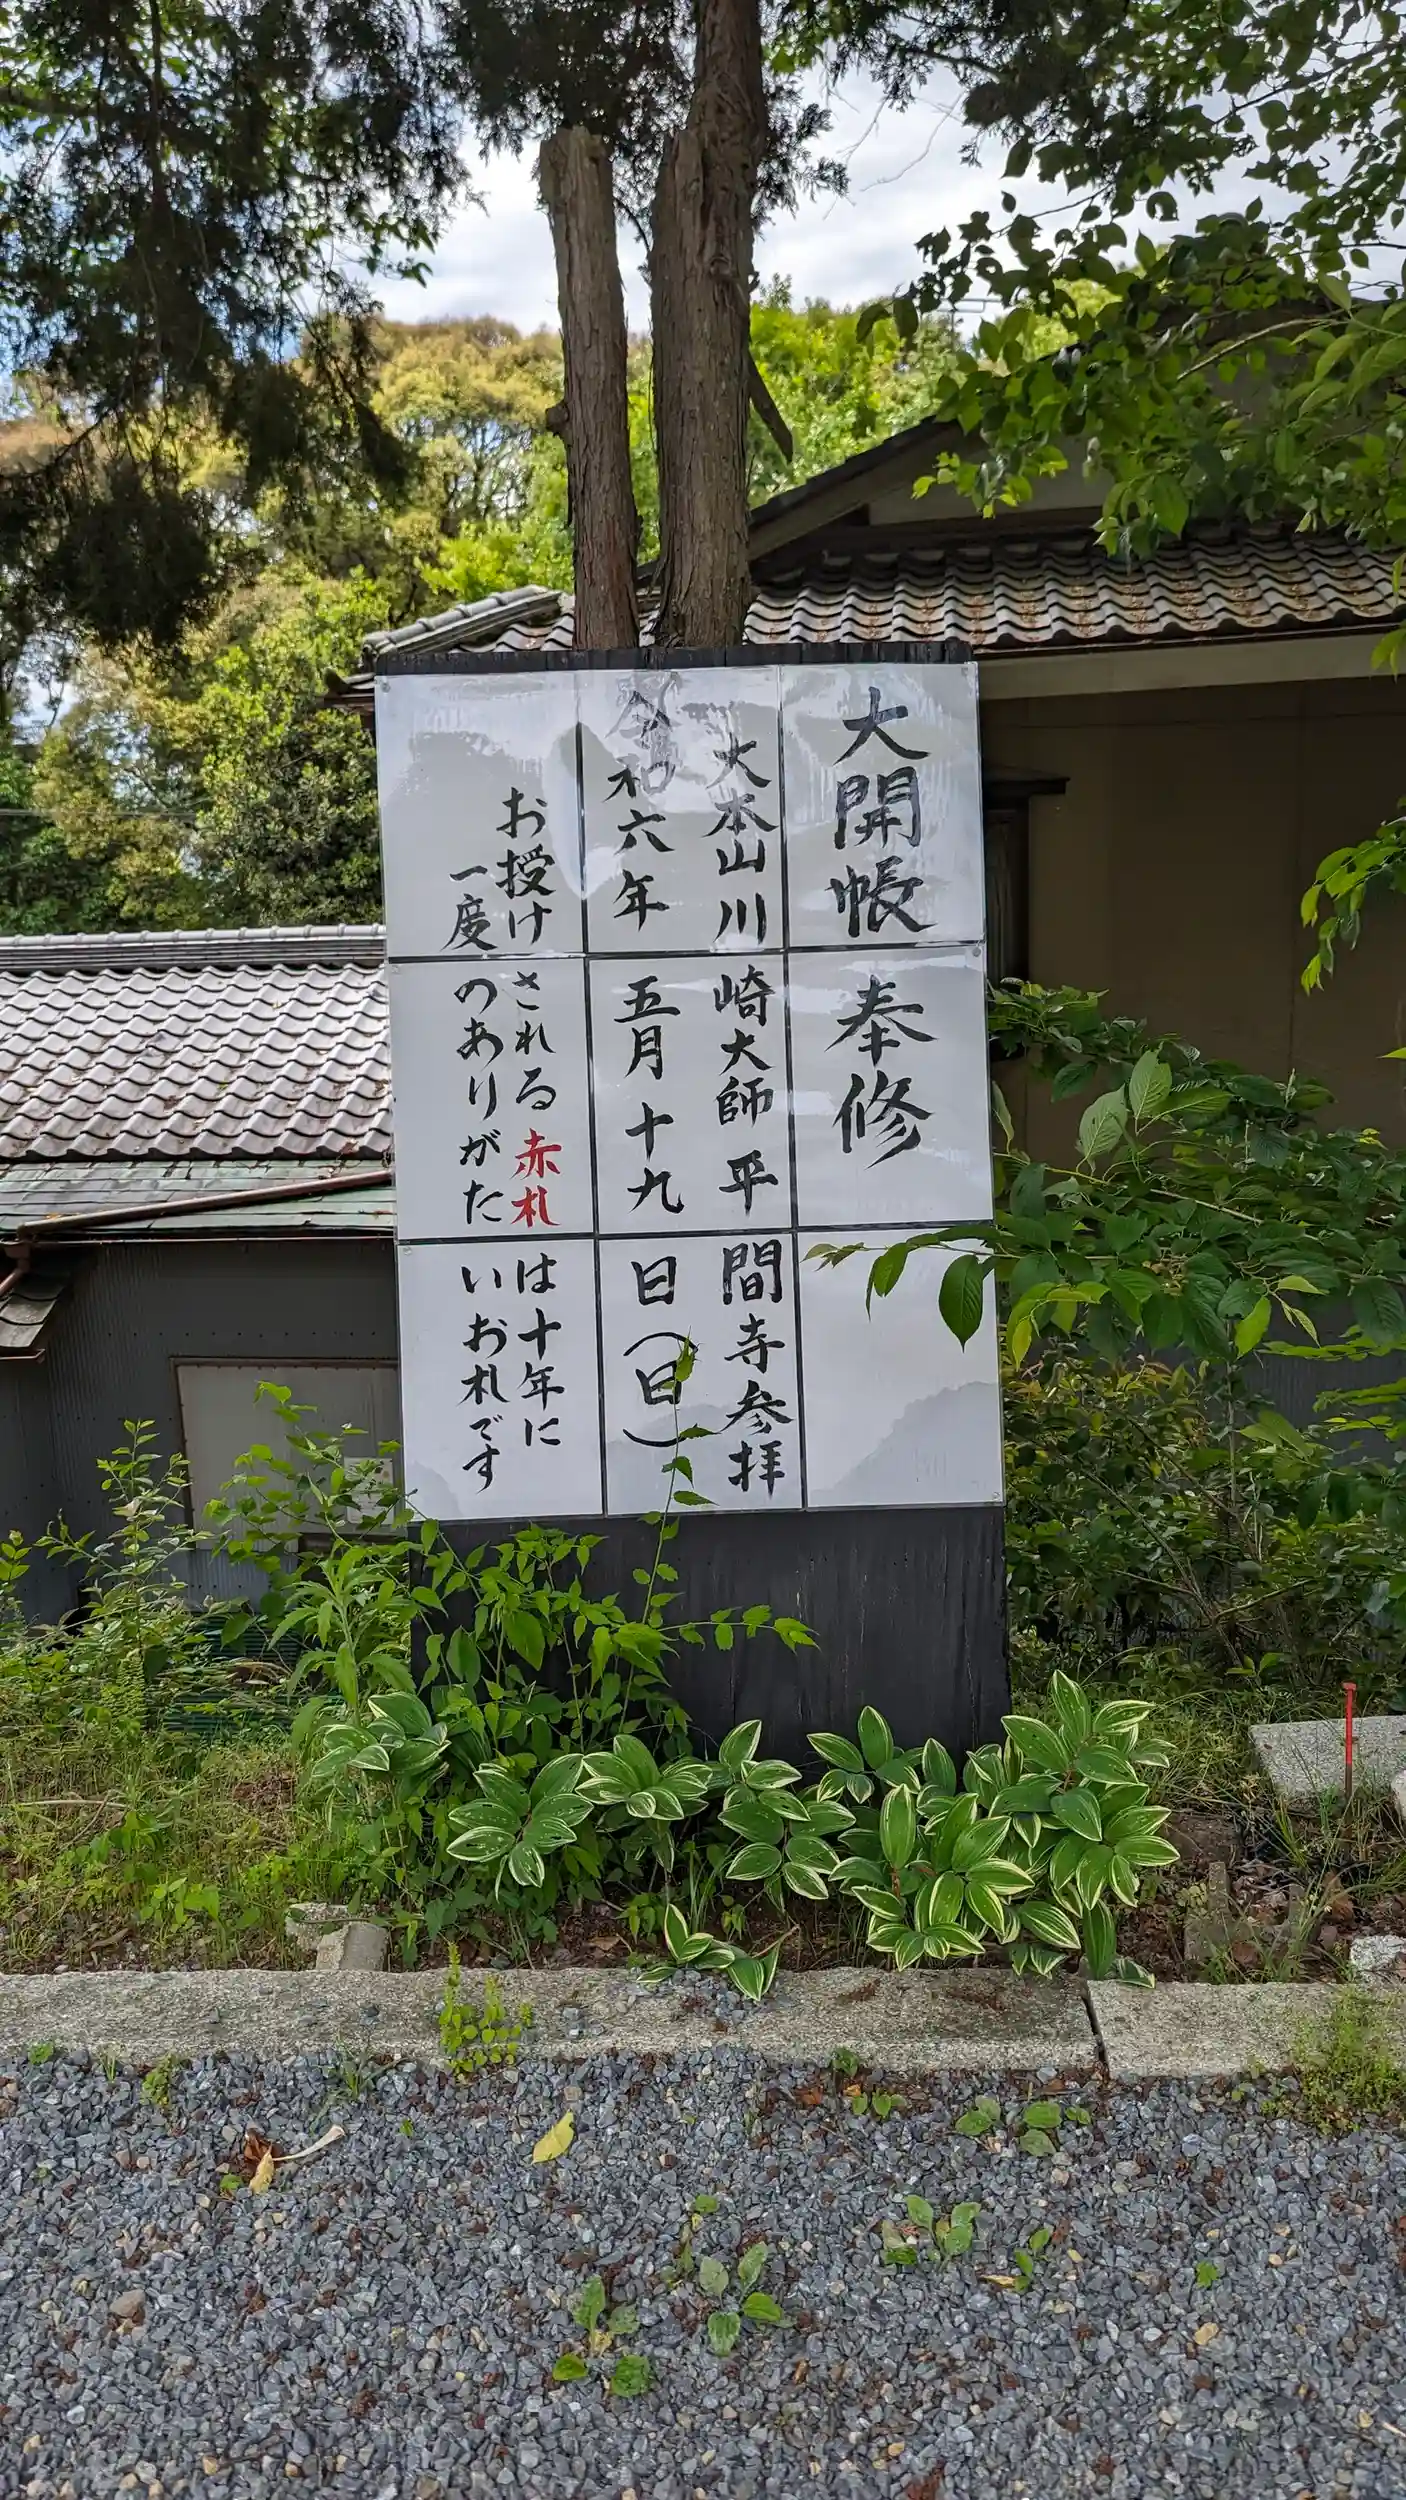 大開帳奉修
大本山川崎大師平間寺参拝
令和六年五月十九日(日)
お授けされる赤札は十年に
一度のありがたいお札です